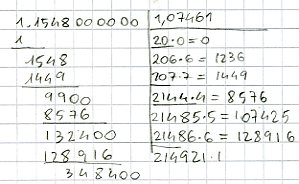 1.1548000000 | 1,07461
1 | 20·0=0
1548 | 206·6=1236
1449 | 207·7=1449
9900
8576 | 2144·4=8576
132400 | 21485·5=107425
128916 | 21486·6=128916
348400 | 214921·1